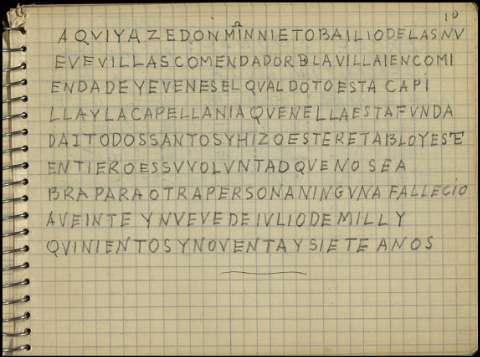 10
AQVIYAZEDONMÑNIETOBAILIODELASNV
EVEVILLASCOMENDADORDLAVILLAIENCOMI
ENDADEYEVENESELQVALDOTOESTACAPI
LLAYLACAPELLANIAQVENELLAESTAFVNDA
DAITODOSSANTOSYHIZOESTERETABLOYESTE
ENTIEROESSVVOLVNTADQVENOSEA
BRAPARAOTRAPERSONANINGVNAFALLECIO
AVEINTEYNVEVEDEIVLIODEMILLY
QVINIENTOSYNOVENTAYSIETEANOS